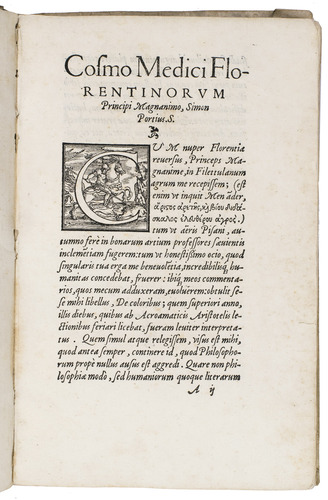 Cosmo Medici Flo-
RENTINORVM
Principi Magnanimo, Simon
Portius. S.
CVM nuper Florentia
reuersus, Princeps Ma-
gnanime, in Filettulanum
agrum me recepissem; (est
enim vt inquit Menāder,
ἄριστος ἀρετῆς, χ̓ βίου διδά-
σκαλος ἐλευθέρου ἀγρός.)
tum vt aëris Pisani, au-
tumno ferè in bonarum artium professores sæuientis
inclemētiam fugerem: tum vt honestissimo ocio, quod
singularis tua erga me beneuolētia, incredibilisq́; hu-
manitas concedebat, fruerer: ibiq́; meos commenta-
rios, quos mecum adduxeram, euoluerem: obtulit se-
se mihi libellus, De coloribus; quem superiori anno,
illis diebus, quibus ab Acroamaticis Aristotelis le-
ctionibus feriari licebat, fueram leuiter interpreta-
tus. Quem simul atque relegissem, visus est mihi,
quod antea semper, continere id, quod Philosopho-
rum propè nullus ausus est aggredi. Quare non phi-
losophiæ modò, sed humaniorum quoque literarum
A ij